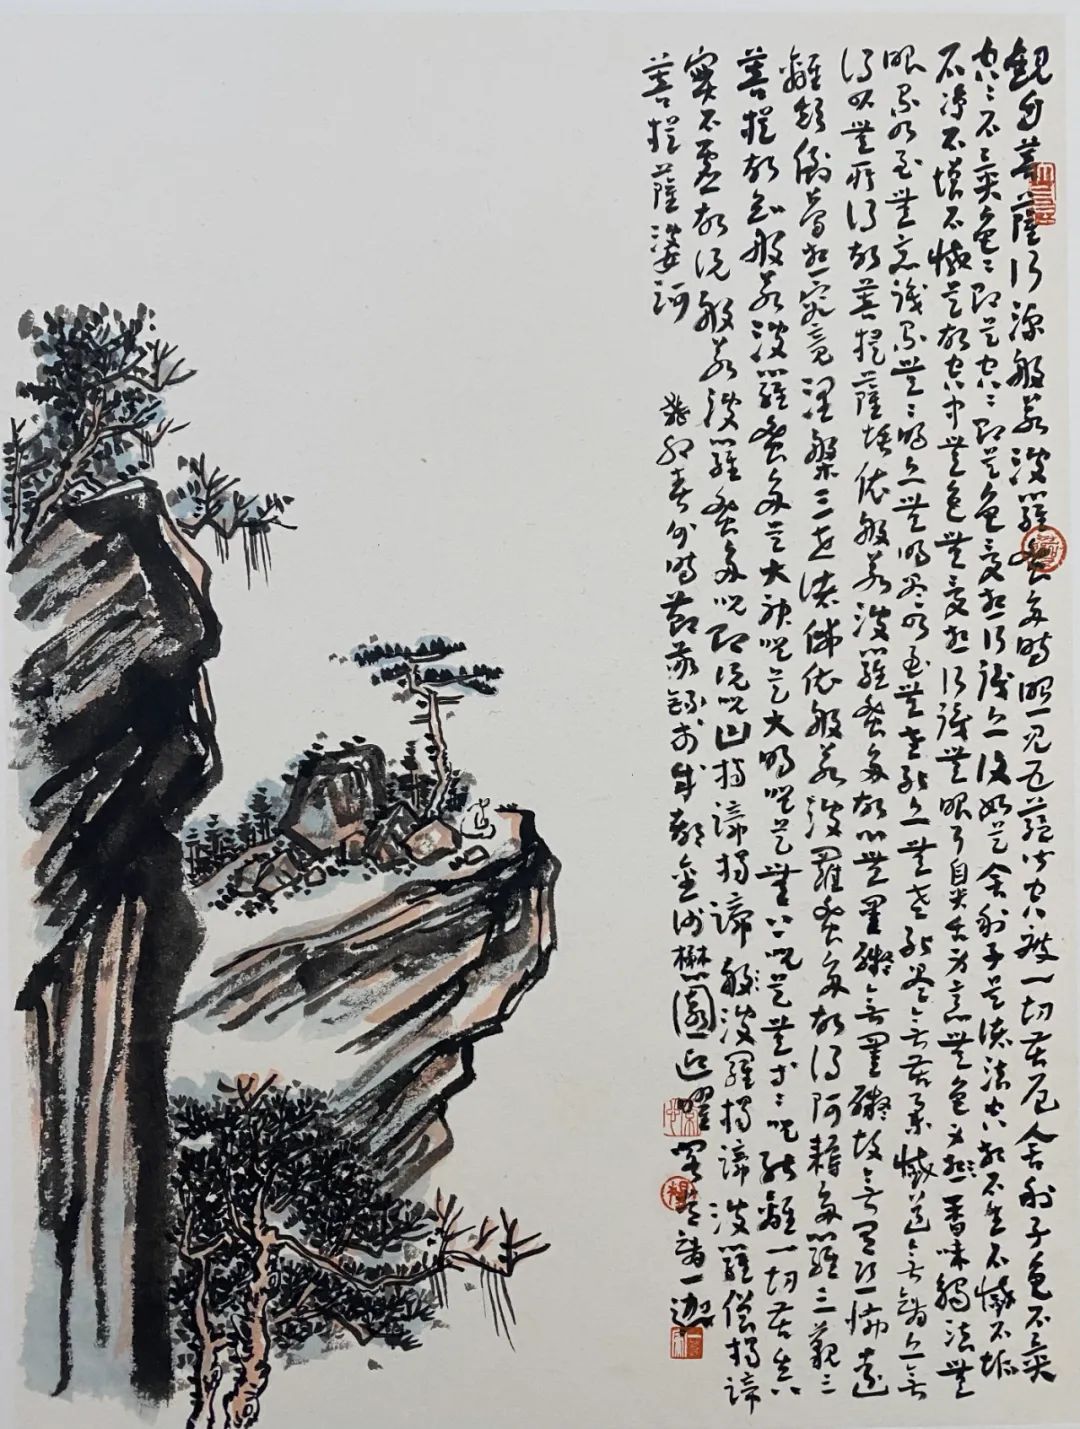 觀自菩薩行深般若波羅蜜多時照見五蘊皆空度一切苦厄舍利子色不異
空〻不異色〻即是空〻即是色受想行識亦復如是舍利子是諸法空相不生不滅不垢
不淨不增不減是故空中無色無受想行識無眼耳鼻舌身意無色聲香味觸法無
眼界乃至無意識界無〻明亦無明盡乃至無老死亦無老死盡無苦集滅道無智亦無
得以無所得故菩提薩埵依般若波羅蜜多故心無罣礙無罣礙故無有恐怖遠
離顛倒夢想究竟涅槃三世諸佛依般若波羅蜜多故得阿耨多羅三藐三
菩提故知般若波羅蜜多是大神咒是大明咒是無上咒是無等〻咒能離一切苦真
實不虛故說般若波羅蜜多咒即說咒曰揭諦揭諦般波羅揭諦波羅僧揭諦
菩提薩婆訶
癸卯春分時節敬錄於成都金沙楙園